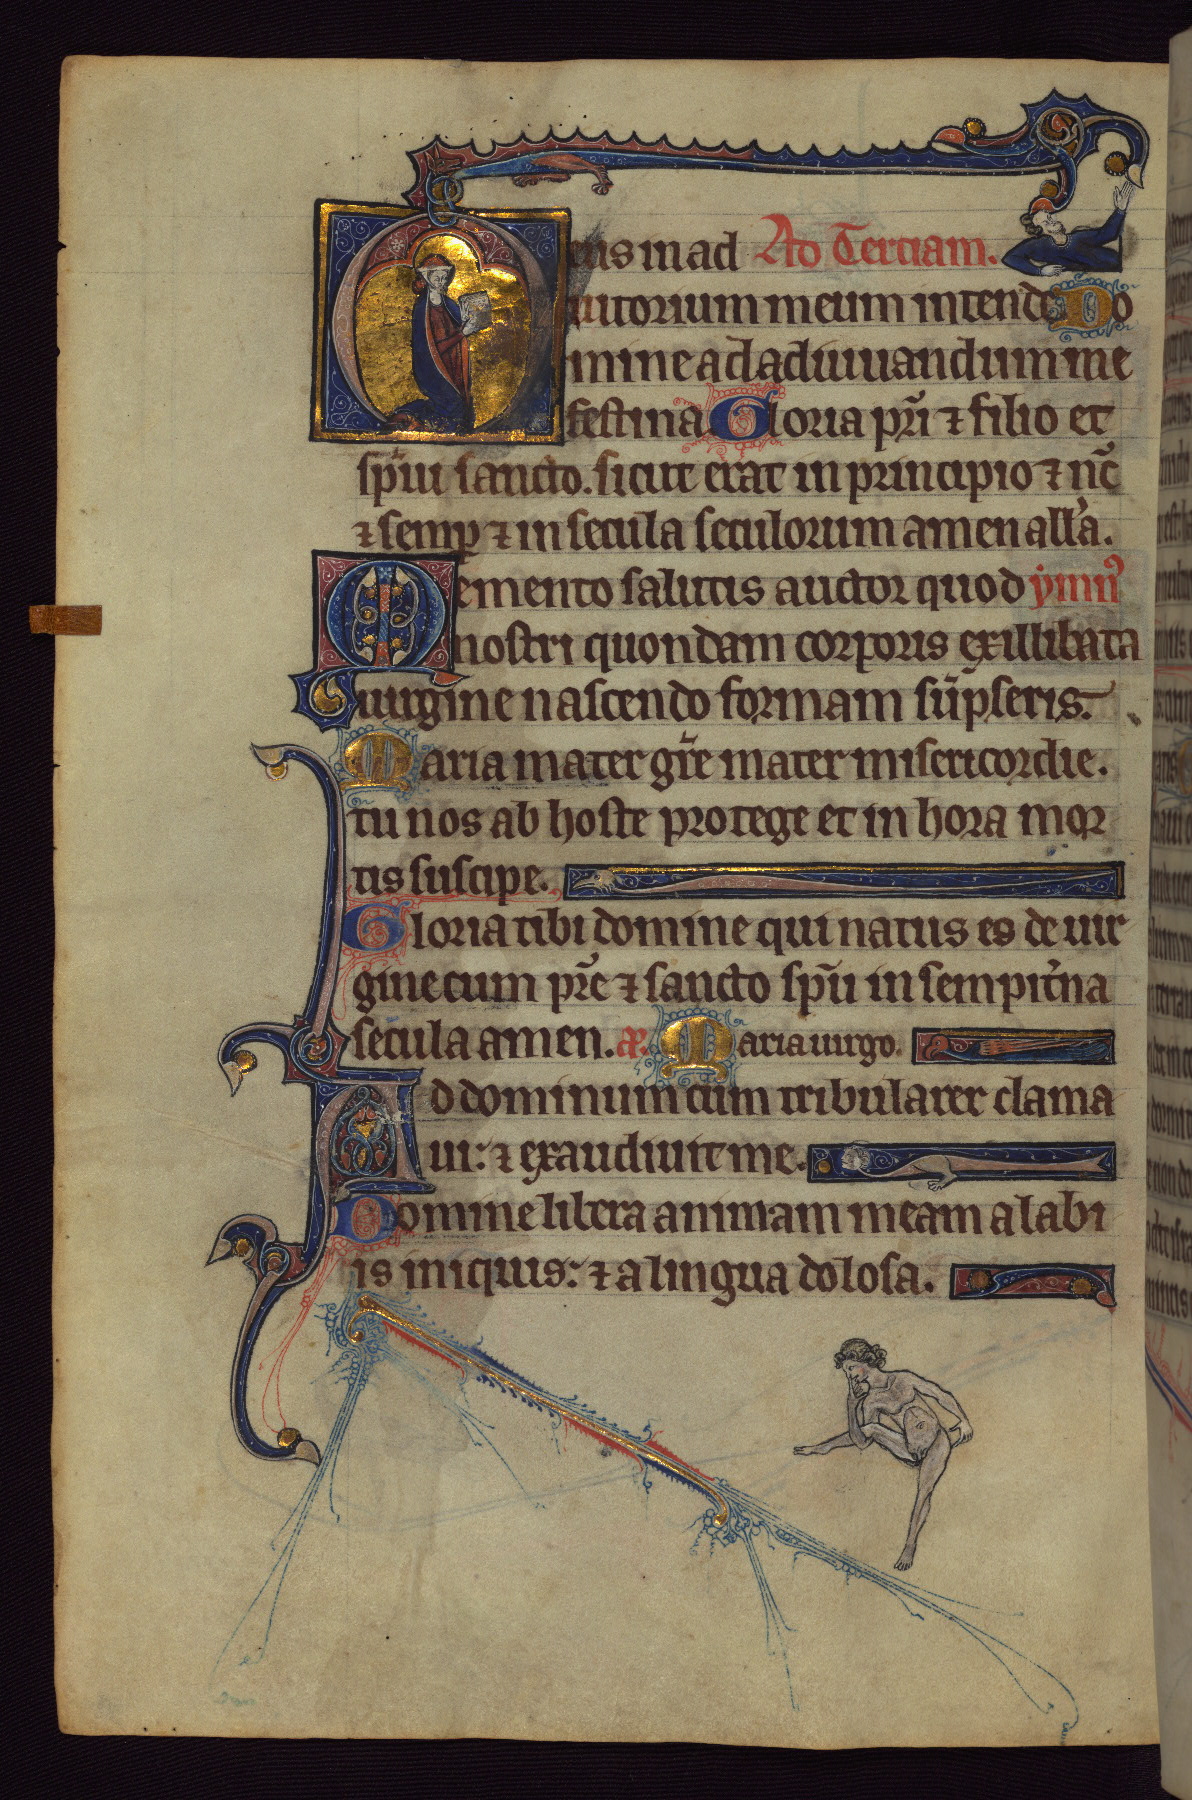 Deus in ad Ad Terciam.
iutorium meum intende Do
mine ad adiuuandum me
festina Gloria pr̃i ⁊ filio et
sp̃ui sancto. sicut erat in principio ⁊ nc̃
⁊ semꝑ ⁊ in secula seculorum amen all̃a.
Memento salutis auctor quod ymnꝰ
nostri quondam corporis ex illibata
uirgine nascendo formam sũpseris.
Maria mater gr̃e mater misericordie.
tu nos ab hoste protege et in hora mor
tis suscipe.
Gloria tibi domine qui natus es de uir
gine cum pr̃e ⁊ sancto sp̃u in sempit̃na
secula amen. a᷒. Maria uirgo.
Ad dominum cum tribularer clama
ui: ⁊ exaudiuit me.
Domine libera animam meam a labi
is iniquis: ⁊ a lingua dolosa.